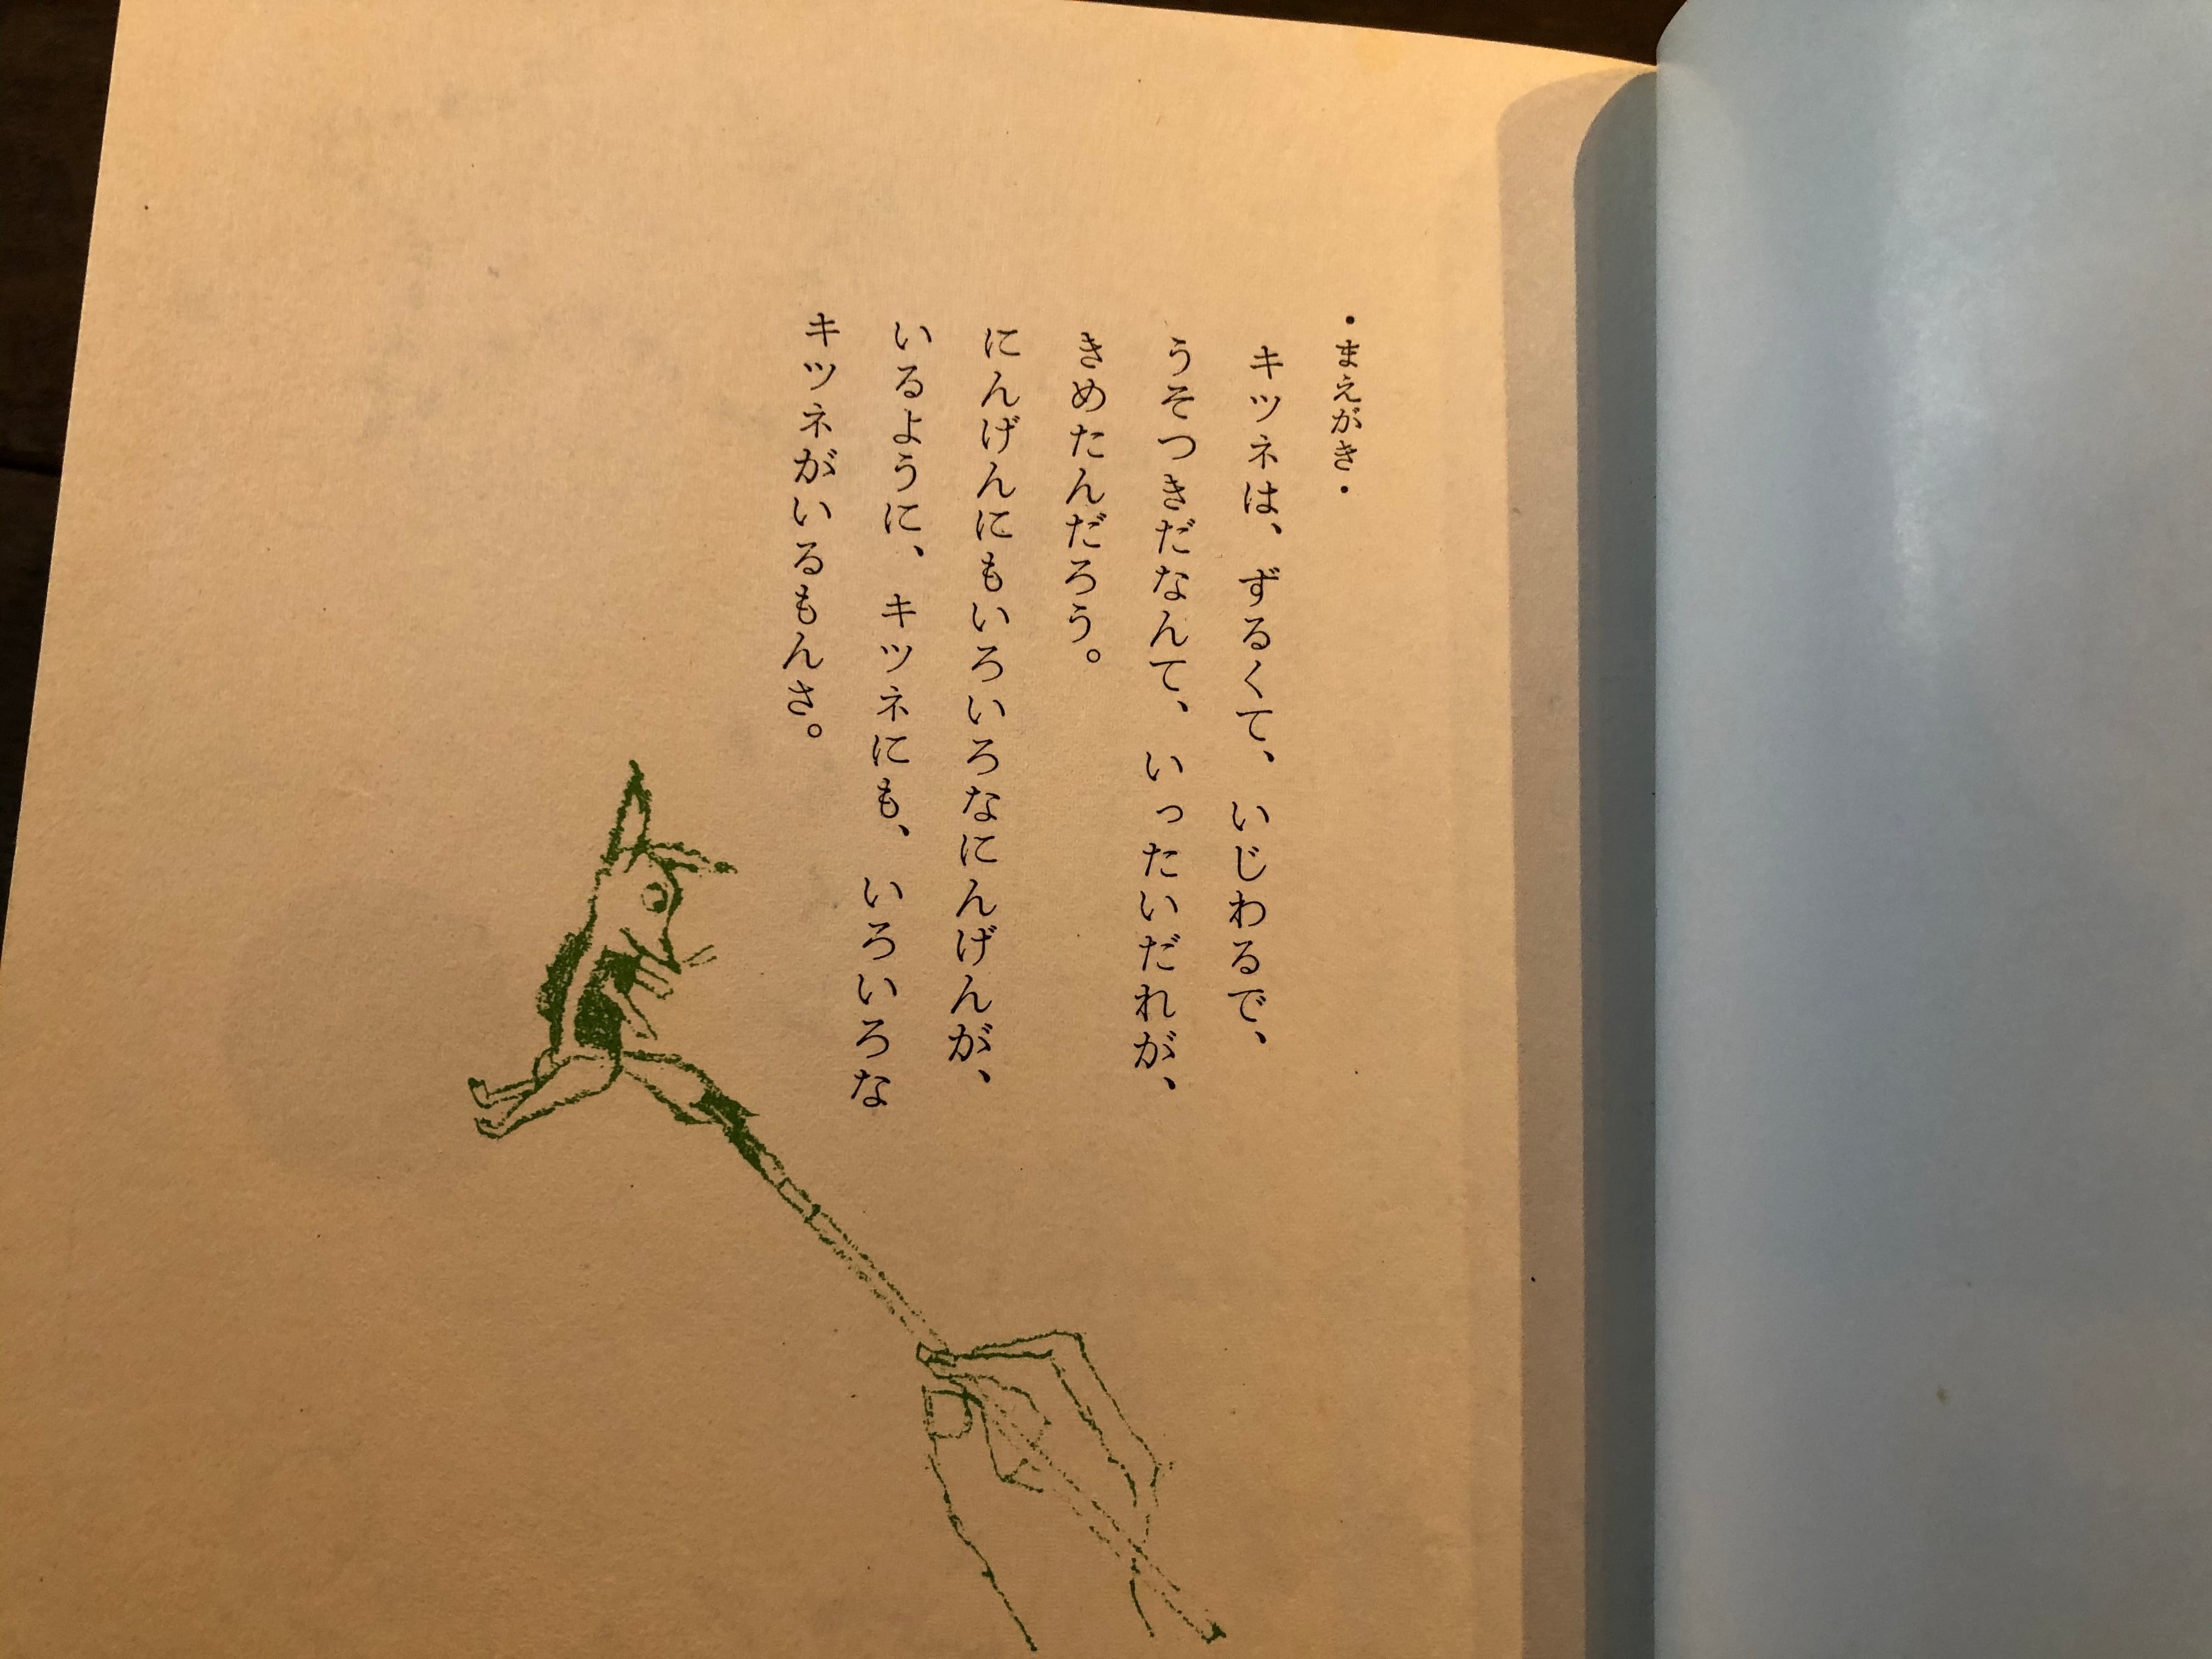 ・まえがき・
キツネは、ずるくて、いじわるで、
うそつきだなんて、いったいだれが、
きめたんだろう。
にんげんにもいろいろなにんげんが、
いるように、キツネにも、いろいろな
キツネがいるもんさ。